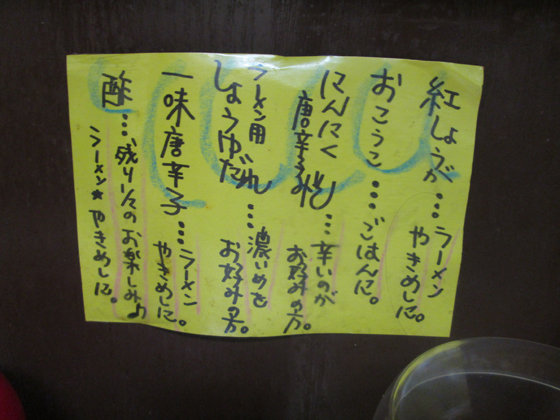 紅しょうが…ラーメン
やきめしに。
おこうこ…ごはんに。
にんにく
唐辛みそ…辛いのが
お好みの方。
ラーメン用
しょうゆだれ…濃いめを
お好みの方。
一味唐辛子…ラーメン
やきめしに。
酢…残り1/2のお楽しみ♪
ラーメン★やきめしに。